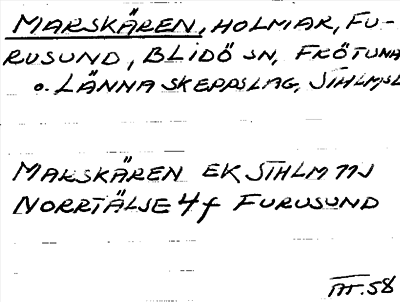 MARSKÄREN, HOLMAR, FU-
RUSUND, BLIDÖ SN, FRÖTUNA
o. LÄNNA SKEPPSLAG, STHLMSL
MARSKÄREN EK STHLM 11J
NORRTÄLJE 4f FURUSUND
TIT.58